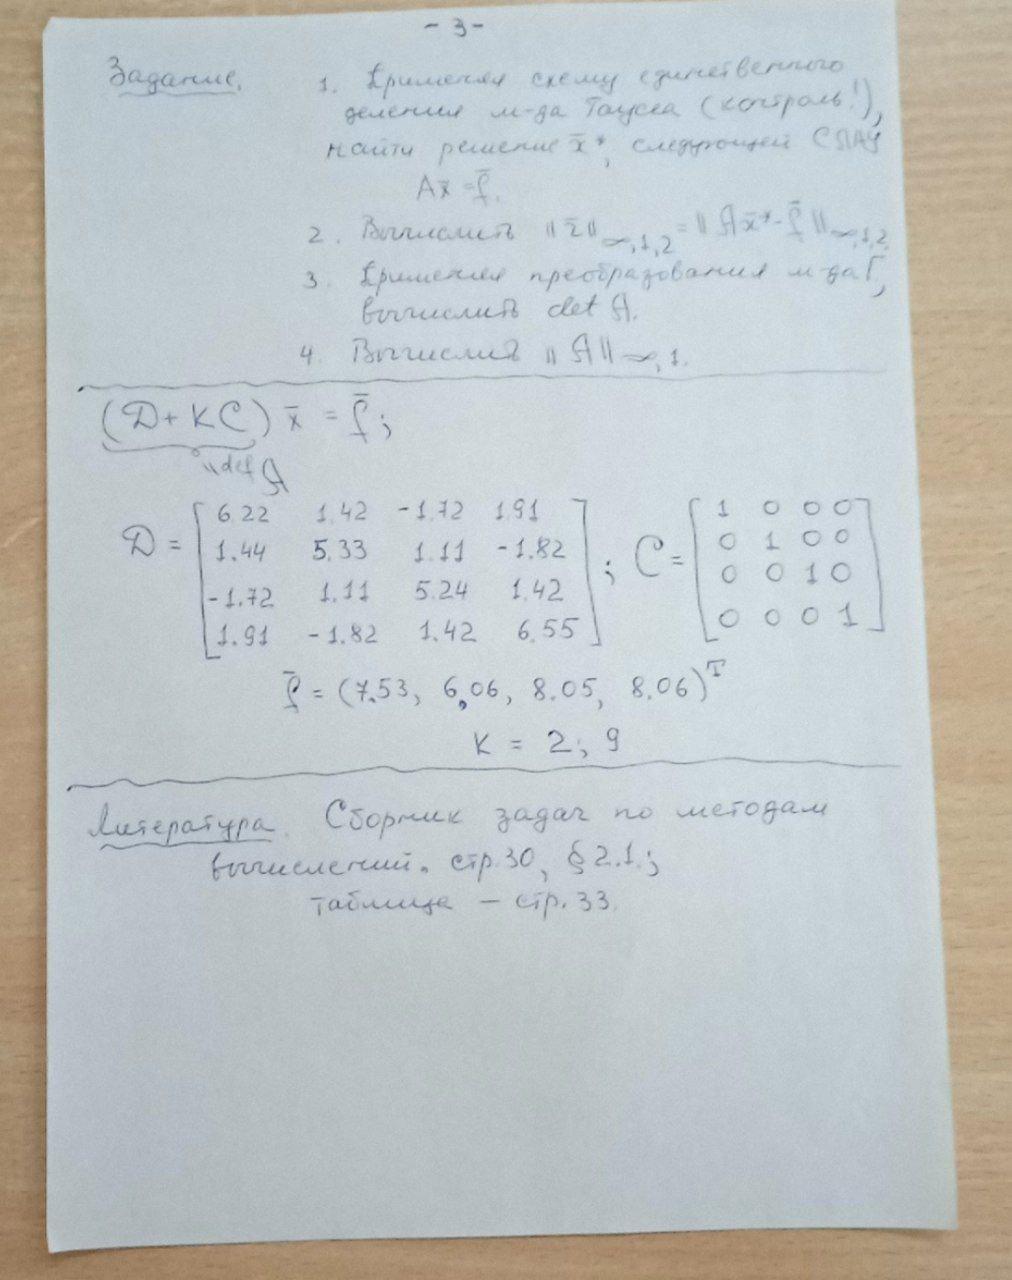 - 3 -
Задание. 1. Применяя схему единственного
деления м-да Гаусса (контроль!),
найти решение x̄*, следующей СЛАУ
Ax̄ = f̄.
2. Вычислить ||z̄||∞,1,2 = ||Ax̄* - f̄||∞,1,2.
3. Применяя преобразования м-да Г,
вычислить det A.
4. Вычислить ||A||∞,1.
(D + KC) x̄ = f̄;
"def A
D = [6.22 1.42 -1.72 1.91
1.44 5.33 1.11 -1.82
-1.72 1.11 5.24 1.42
1.91 -1.82 1.42 6.55]; C = [1 0 0 0
0 1 0 0
0 0 1 0
0 0 0 1]
f̄ = (7.53, 6,06, 8.05, 8.06)ᵀ
K = 2; 9
Литература. Сборник задач по методам
вычислений. стр.30, § 2.1.;
таблица – стр.33.